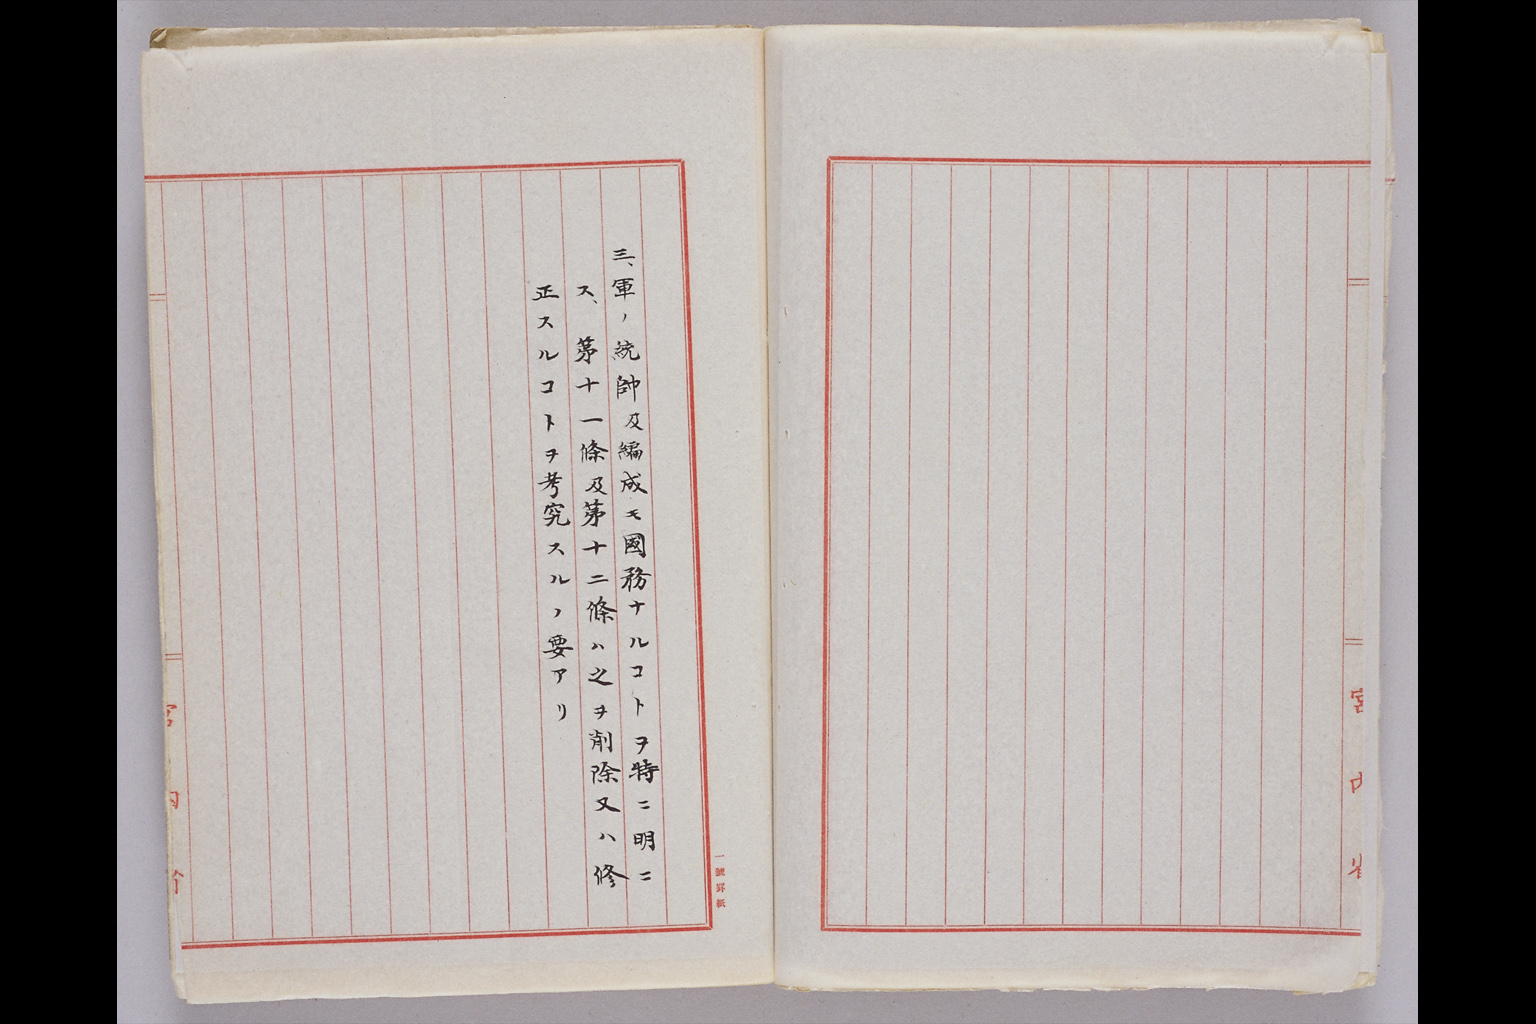 宮内省
三、軍ノ統帥及編成モ國務ナルコトヲ特ニ明ニ
ス、第十一條及第十二條ハ之ヲ削除又ハ修
正スルコトヲ考究スルノ要アリ
一號罫紙
宮内省